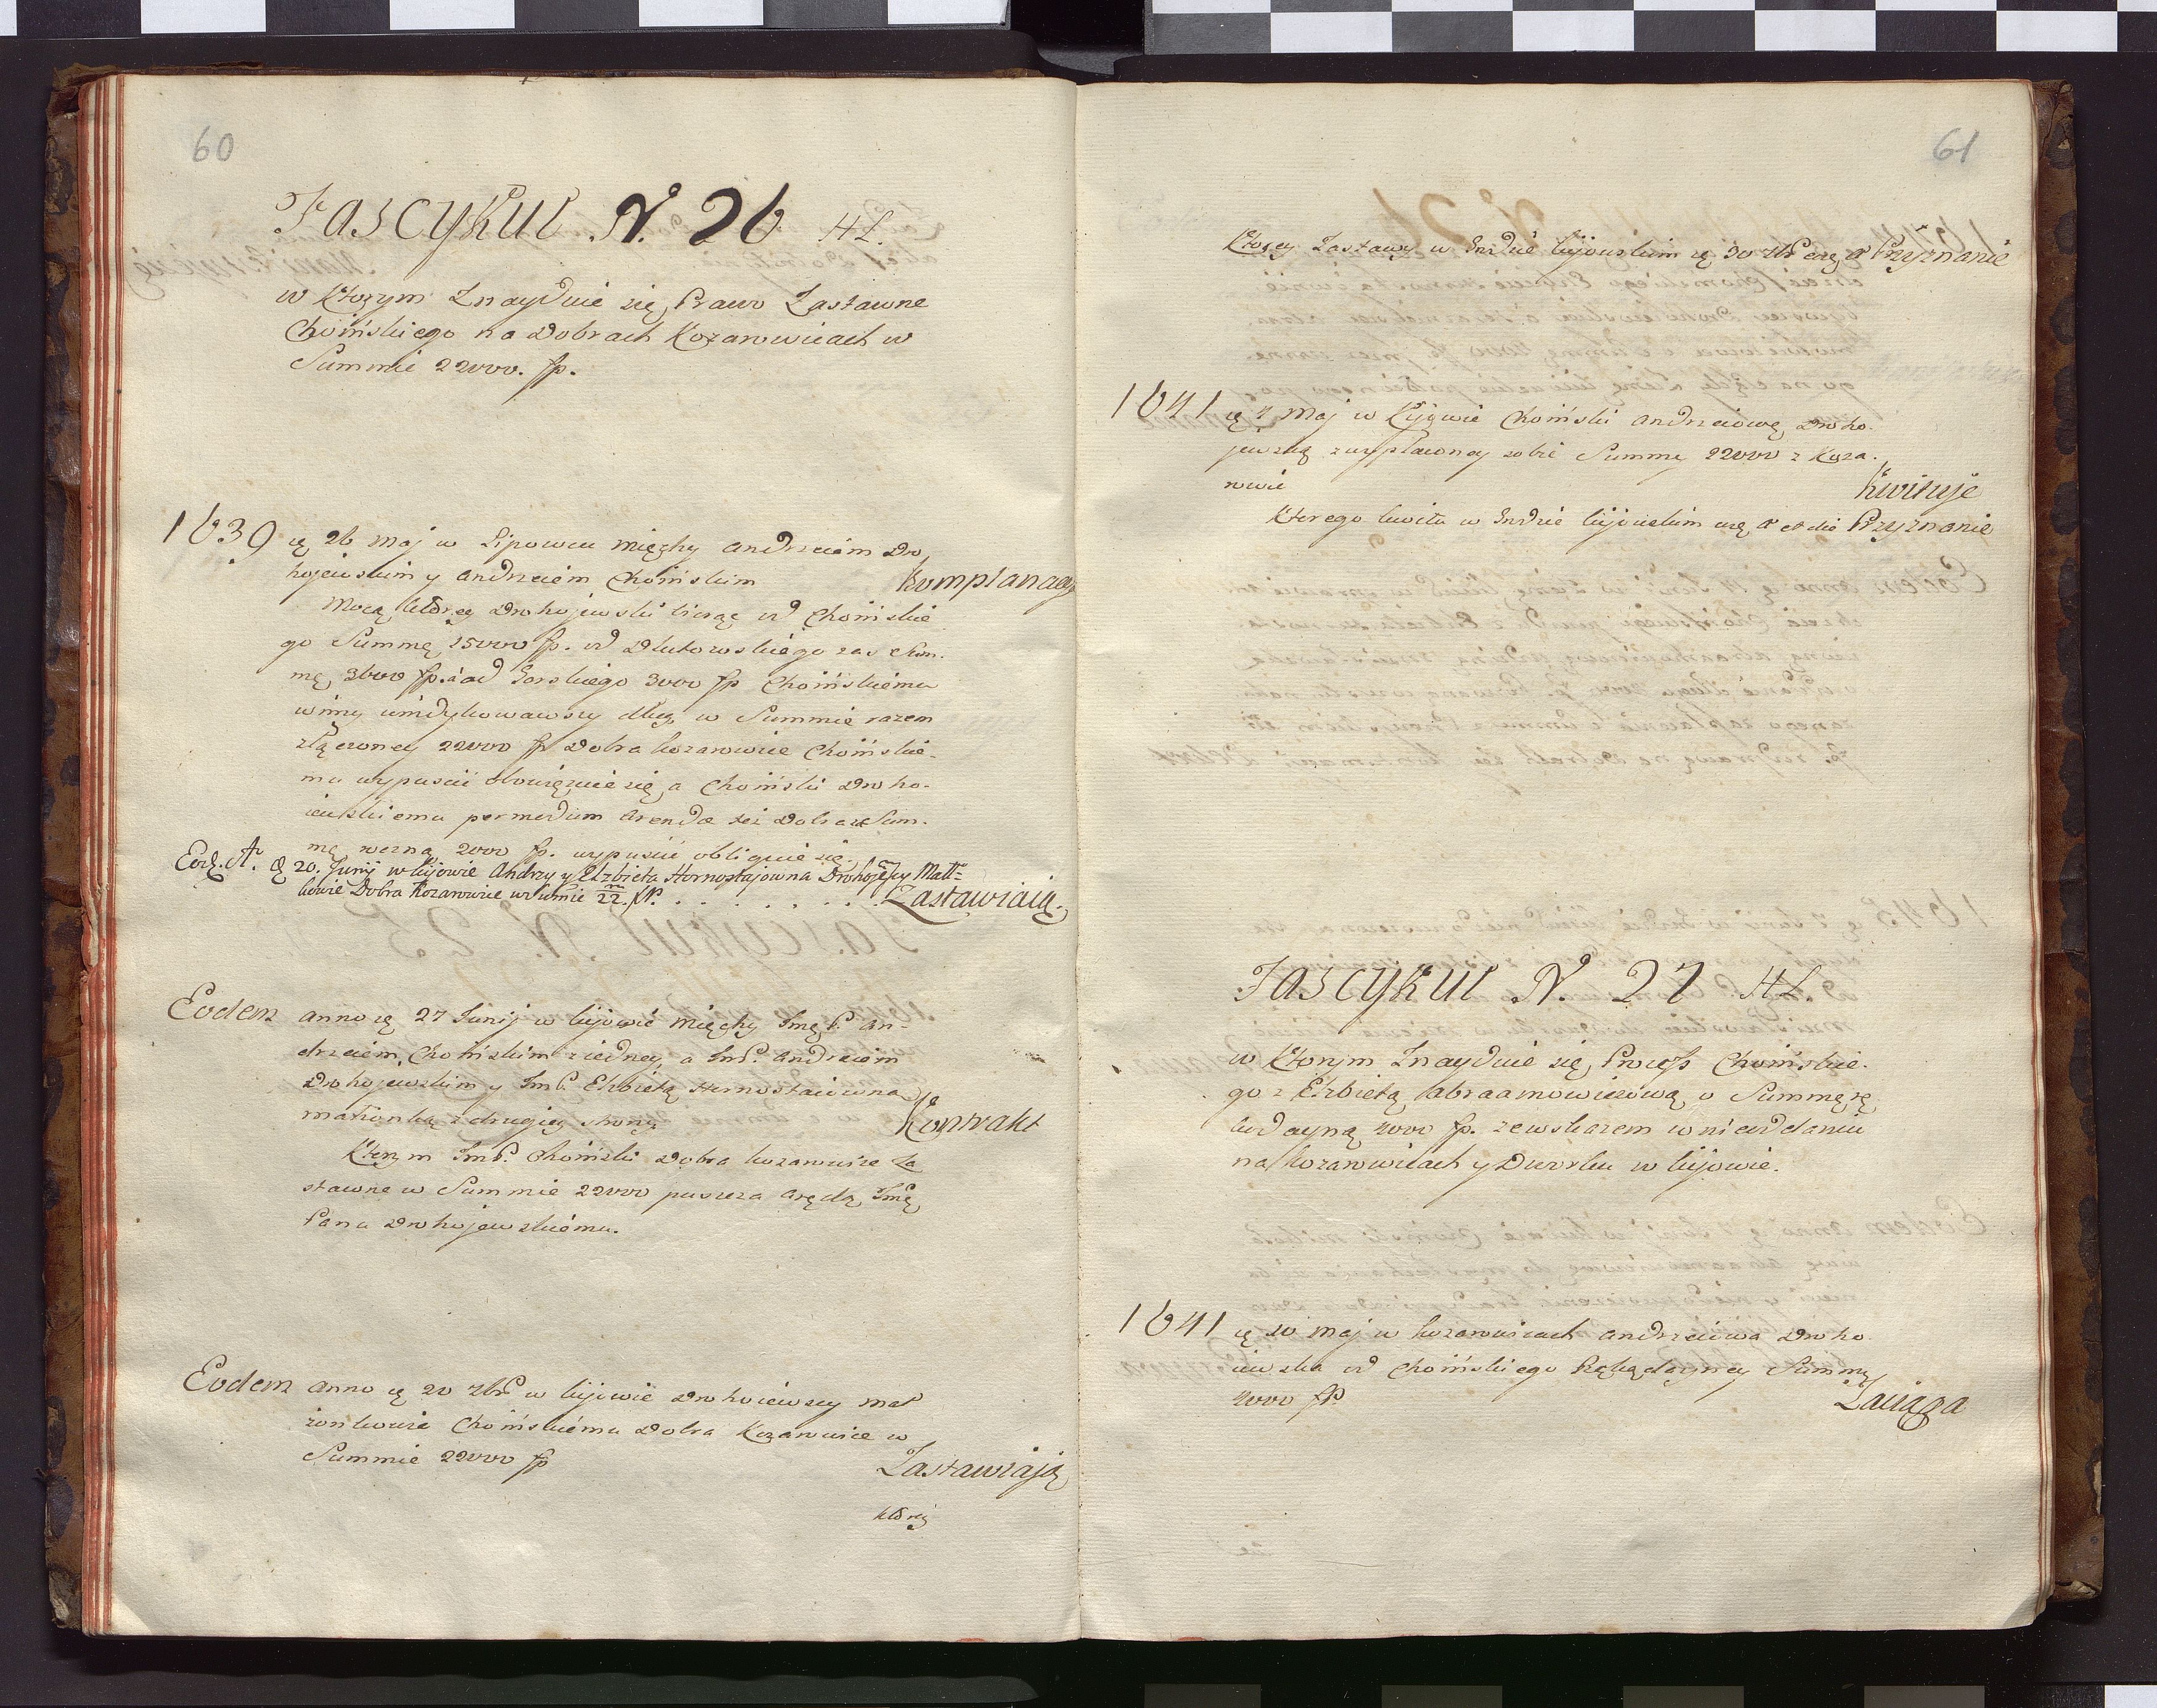 60
Fascykuł N. 26 HL.
w ktorym Znayduie się Prawo Zastawne
Choińskiego na Dobrach Kozarowicach w
Summie 22000. fp.
1639 ę 26 Maj w Lipowcu między Andrzeiem Dro
hojewskim y Andrzeiem Choińskim Komplanacya
Mocą ktorey Drohojewski biorąc od Choińskie
go Summę 15000 fp. od Dłutowskiego zas Sum-
mę 3600 fp. a od Gorskiego 3000 fp Choińskiemu
winny długi w Summie razem
złączoney 22000 fp Dobra kozarowice Choińskie-
mu wypuscić obowięzuie się, a Choiński Droho-
iewskiemu per modum Arendæ też Dobra w Sum-
mę roczną 2000 fp. wypuscić obliguie się.
Eod. A. ę 20. Junij w kijowie Andrzy y Elzbieta Hornostajowna Drohojewscy Małż=
kowie Dobra Kozarowice w sumie m/22. fp. . . . . . . . Zastawiaią.
Eodem anno ę 27 Junij w kijowie między Jmę P. An-
drzeiem Choińskim z iedney, a JmP. Andrzeiem
Drohojewskim y JmP. Elzbietą Hornostaiowną
małżonką z drugiey strony Kontrakt
Ktorym JmP. Choiński Dobra kozarowice Za
stawne w Summie 22000 puszcza Arędą Jmę
Panu Drohojewskiemu.
Eodem anno ę 20 7bris w kijowie Drohoiewscy mał
żonkowie Choińskiemu Dobra Kozarowice w
Summie 22000 fp Zastawiają
ktorey
61
Ktorey Zastawy w Grodzie kijowskim ę 30 7bris Przyznanie
1641 ę 7 Maj w Kijowie Choiński Andrzeiowę Droho-
jewską z wypłaconey sobie Summy 22000 z Koza-
rowic Kwituje
Ktorego kwitu w Grodzie kijowskim eodem Przyznanie
Fascykuł N. 27 HL.
w ktorym Znayduie się Process Choińskie-
go z Elzbietą Abraamowiczową o Summę rę
kodayną 4000 fp. ze wskazem w nieoddaniu
na Kozarowicach y Dworku w kijowie.
1641 ę 10 Maj w kozarowicach Andrzeiowa Droho
iewska od Choińskiego Rękodayney Summy
4000 fp Zaciąga